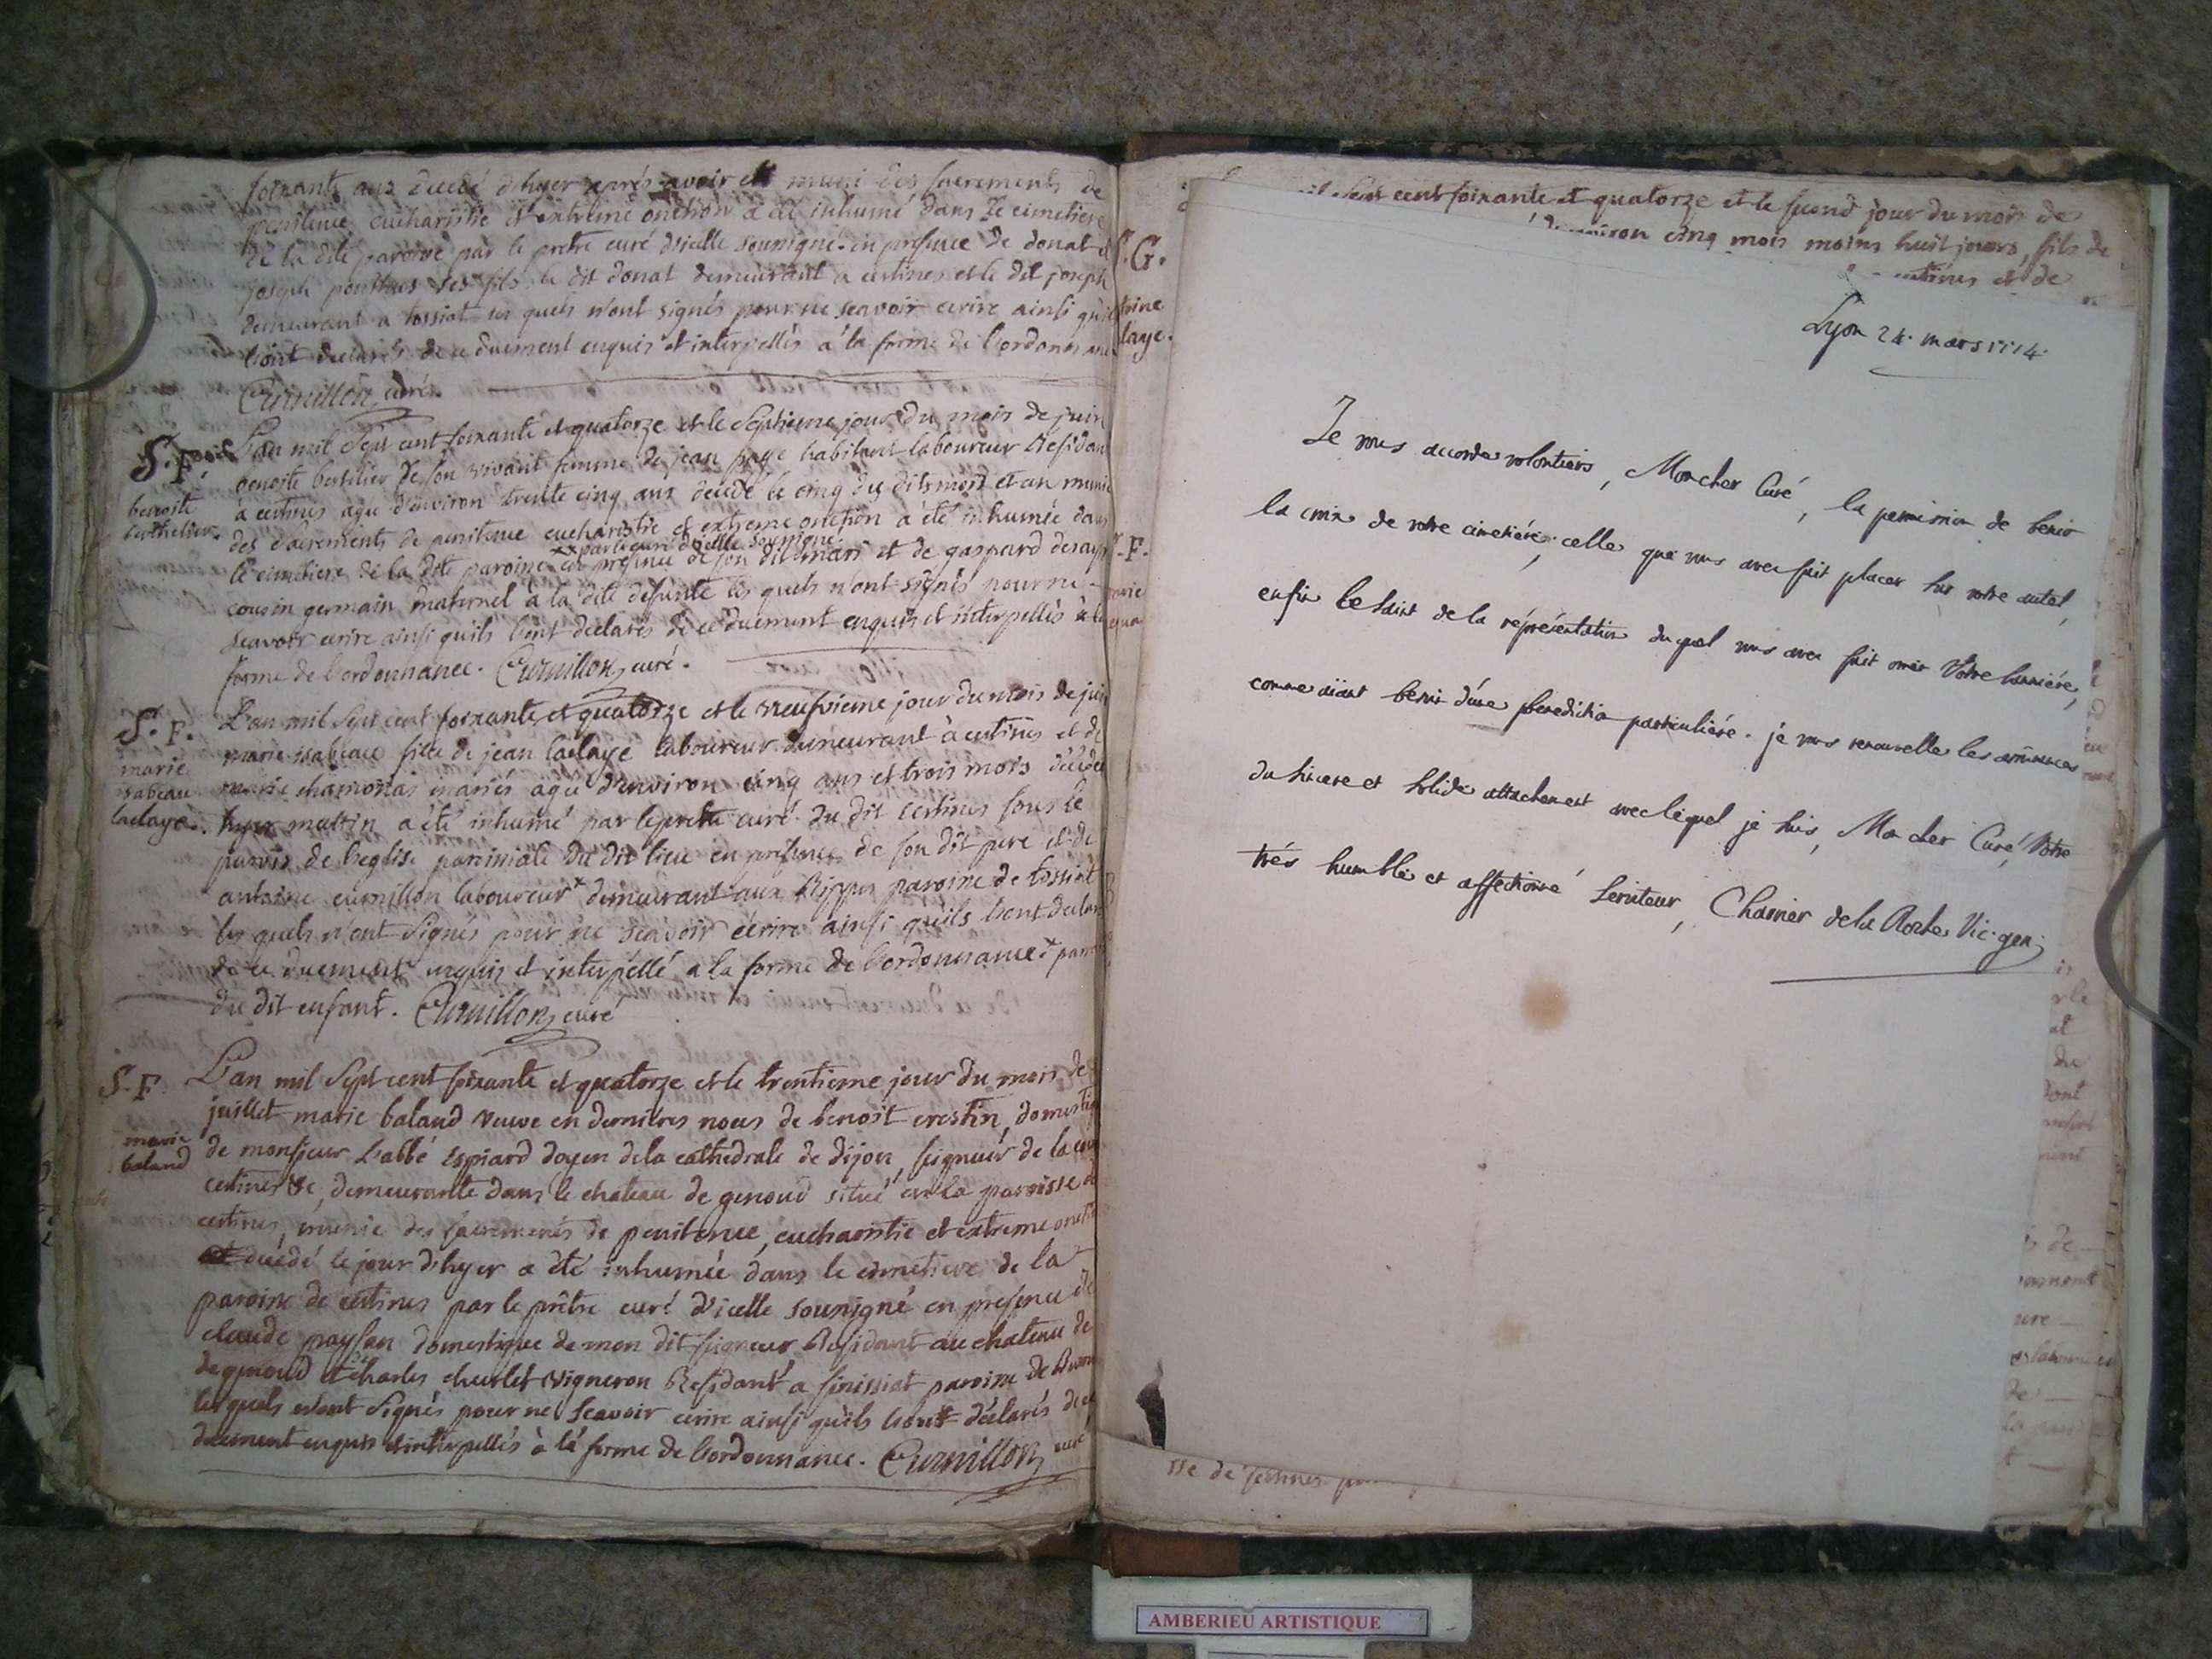 soixante ans decedé d'hyer aprés avoir été muni des sacrements de
penitence eucharistie et extreme onction a été inhumé dans le cimetiere
de la dite paroisse par le pretre curé d'icelle soussigné en presence de donat et
joseph ses fils le dit donat demeurant a certines et le dit joseph
demeurant a tossiat les quels n'ont signés pour ne scavoir ecrire ainsi qu'ils
l'ont declarés de ce duement enquis et interpellés à la forme de l'ordonnance
Curnillon curé.
S. F.
benoite
berthelier.
L'an mil sept cent soixante et quatorze et le septieme jour du mois de juin
benoite bertelier de son vivant femme de jean page habitant laboureur Residant
à certines agée d'environ trente cinq ans decedé le cinq du dit mois et an munie
des sacrements de penitence eucharistie et extreme onction a été inhumée dans
xx par le curé d'icelle soussigné
le cimetiere de la dite paroisse xx en presence de son dit mari et de gaspard
cousin germain maternel à la dite defunte les quels n'ont signés pour ne
scavoir ecrire ainsi qu'ils l'ont declarés de ce duement enquis et interpellés à la
forme de l'ordonnance. Curnillon curé.
S. F.
marie
isabeau
laelaye.
L'an mil sept cent soixante et quatorze et le neufvieme jour du mois de juin
marie isabeau fille de jean laelaye laboureur demeurant à certines et de
marie chamonas mariés agée d'environ cinq ans et trois mois decedée
hyer mattin a été inhumé par le pretre curé du dit certines sous le
parvis de l'eglise paroissiale du dit lieu en presence de son dit pere et de
antoine curnillon laboureur x demeurant aux Rippes paroisse de tossiat
les quels n'ont signés pour ne scavoir écrire ainsi qu'ils l'ont declaré
de ce duement enquis et interpellé a la forme de l'ordonnance x
du dit enfant. Curnillon curé
S. F.
marie
baland
L'an mil sept cent soixante et quatorze et le trentieme jour du mois de
juillet marie baland veuve en dernieres noces de benoit crestin, domestique
de monsieur l'abbé Espiard doyen de la cathedrale de dijon, seigneur de la cour
certines &c, demeurante dans le chateau de genoud situé en la paroisse de
certines, munie des sacrements de penitence, eucharistie et extreme onction
decedé le jour d'hyer a été inhumée dans le cimetiere de la
paroisse de certines par le prêtre curé d'icelle soussigné en presence de
claude paysan domestique de mon dit seigneur Residant au chateau de
de genoud et charles churlet vigneron Residant a sinissiat paroisse de
lesquels n'ont signés pour ne scavoir ecrire ainsi qu'ils l'ont déclarés de ce
duement enquis et interpellés à la forme de l'ordonnance. Curnillon curé
S. G.
laye.
S. F.
sept cent soixante et quatorze et le second jour du mois de
d'environ cinq mois moins huit jours, fils de
certines et de
Lyon 24. mars 1774.
Je vous accorde volontiers, Mon cher Curé, la permission de benir
la croix de votre cimetiére, celle que vous avez fait placer sur votre autel,
enfin le saint de la répresentation duquel vous avez fait orner Votre banniére,
comme aiant besoin d'une benediction particuliére. je vous renouvelle les assurances
du sincere et solide attachement avec lequel je suis, Mon cher Curé, Votre
trés humble et affectionné serviteur, Charrier de la Roche Vic. gen.
sse de
dont
du
AMBERIEU ARTISTIQUE